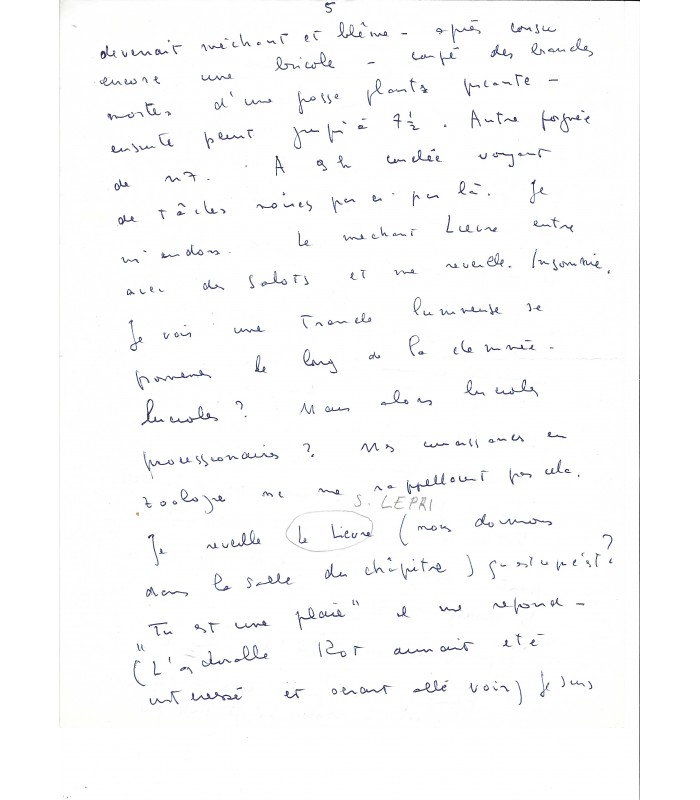 5
devenait méchant et blême - après cousu
encore une bricole - coupé des branches
mortes d'une grosse plante picante -
ensuite peint jusqu'à 7½. Autre poignée
de n7. A 9 h couchée voyant
de tâches noires par ci par là. Je
m'endors. Le mechant Lievre entre
avec des sabots et me reveille. Insomnie.
Je vois une trainée lumineuse se
promener le long de la cheminée.
lucioles? Mais alors lucioles
processionaires? Mes connaissances en
zoologie ne me rappellent pas cela.
S. LEPRI
Je reveille le Lievre (nous dormons
dans la salle du châpitre) qu'est ce que c'est?
"Tu est une plaie" il me repond -
(L'adorable Kot aurait été
interessé et serait allé voir) Je suis